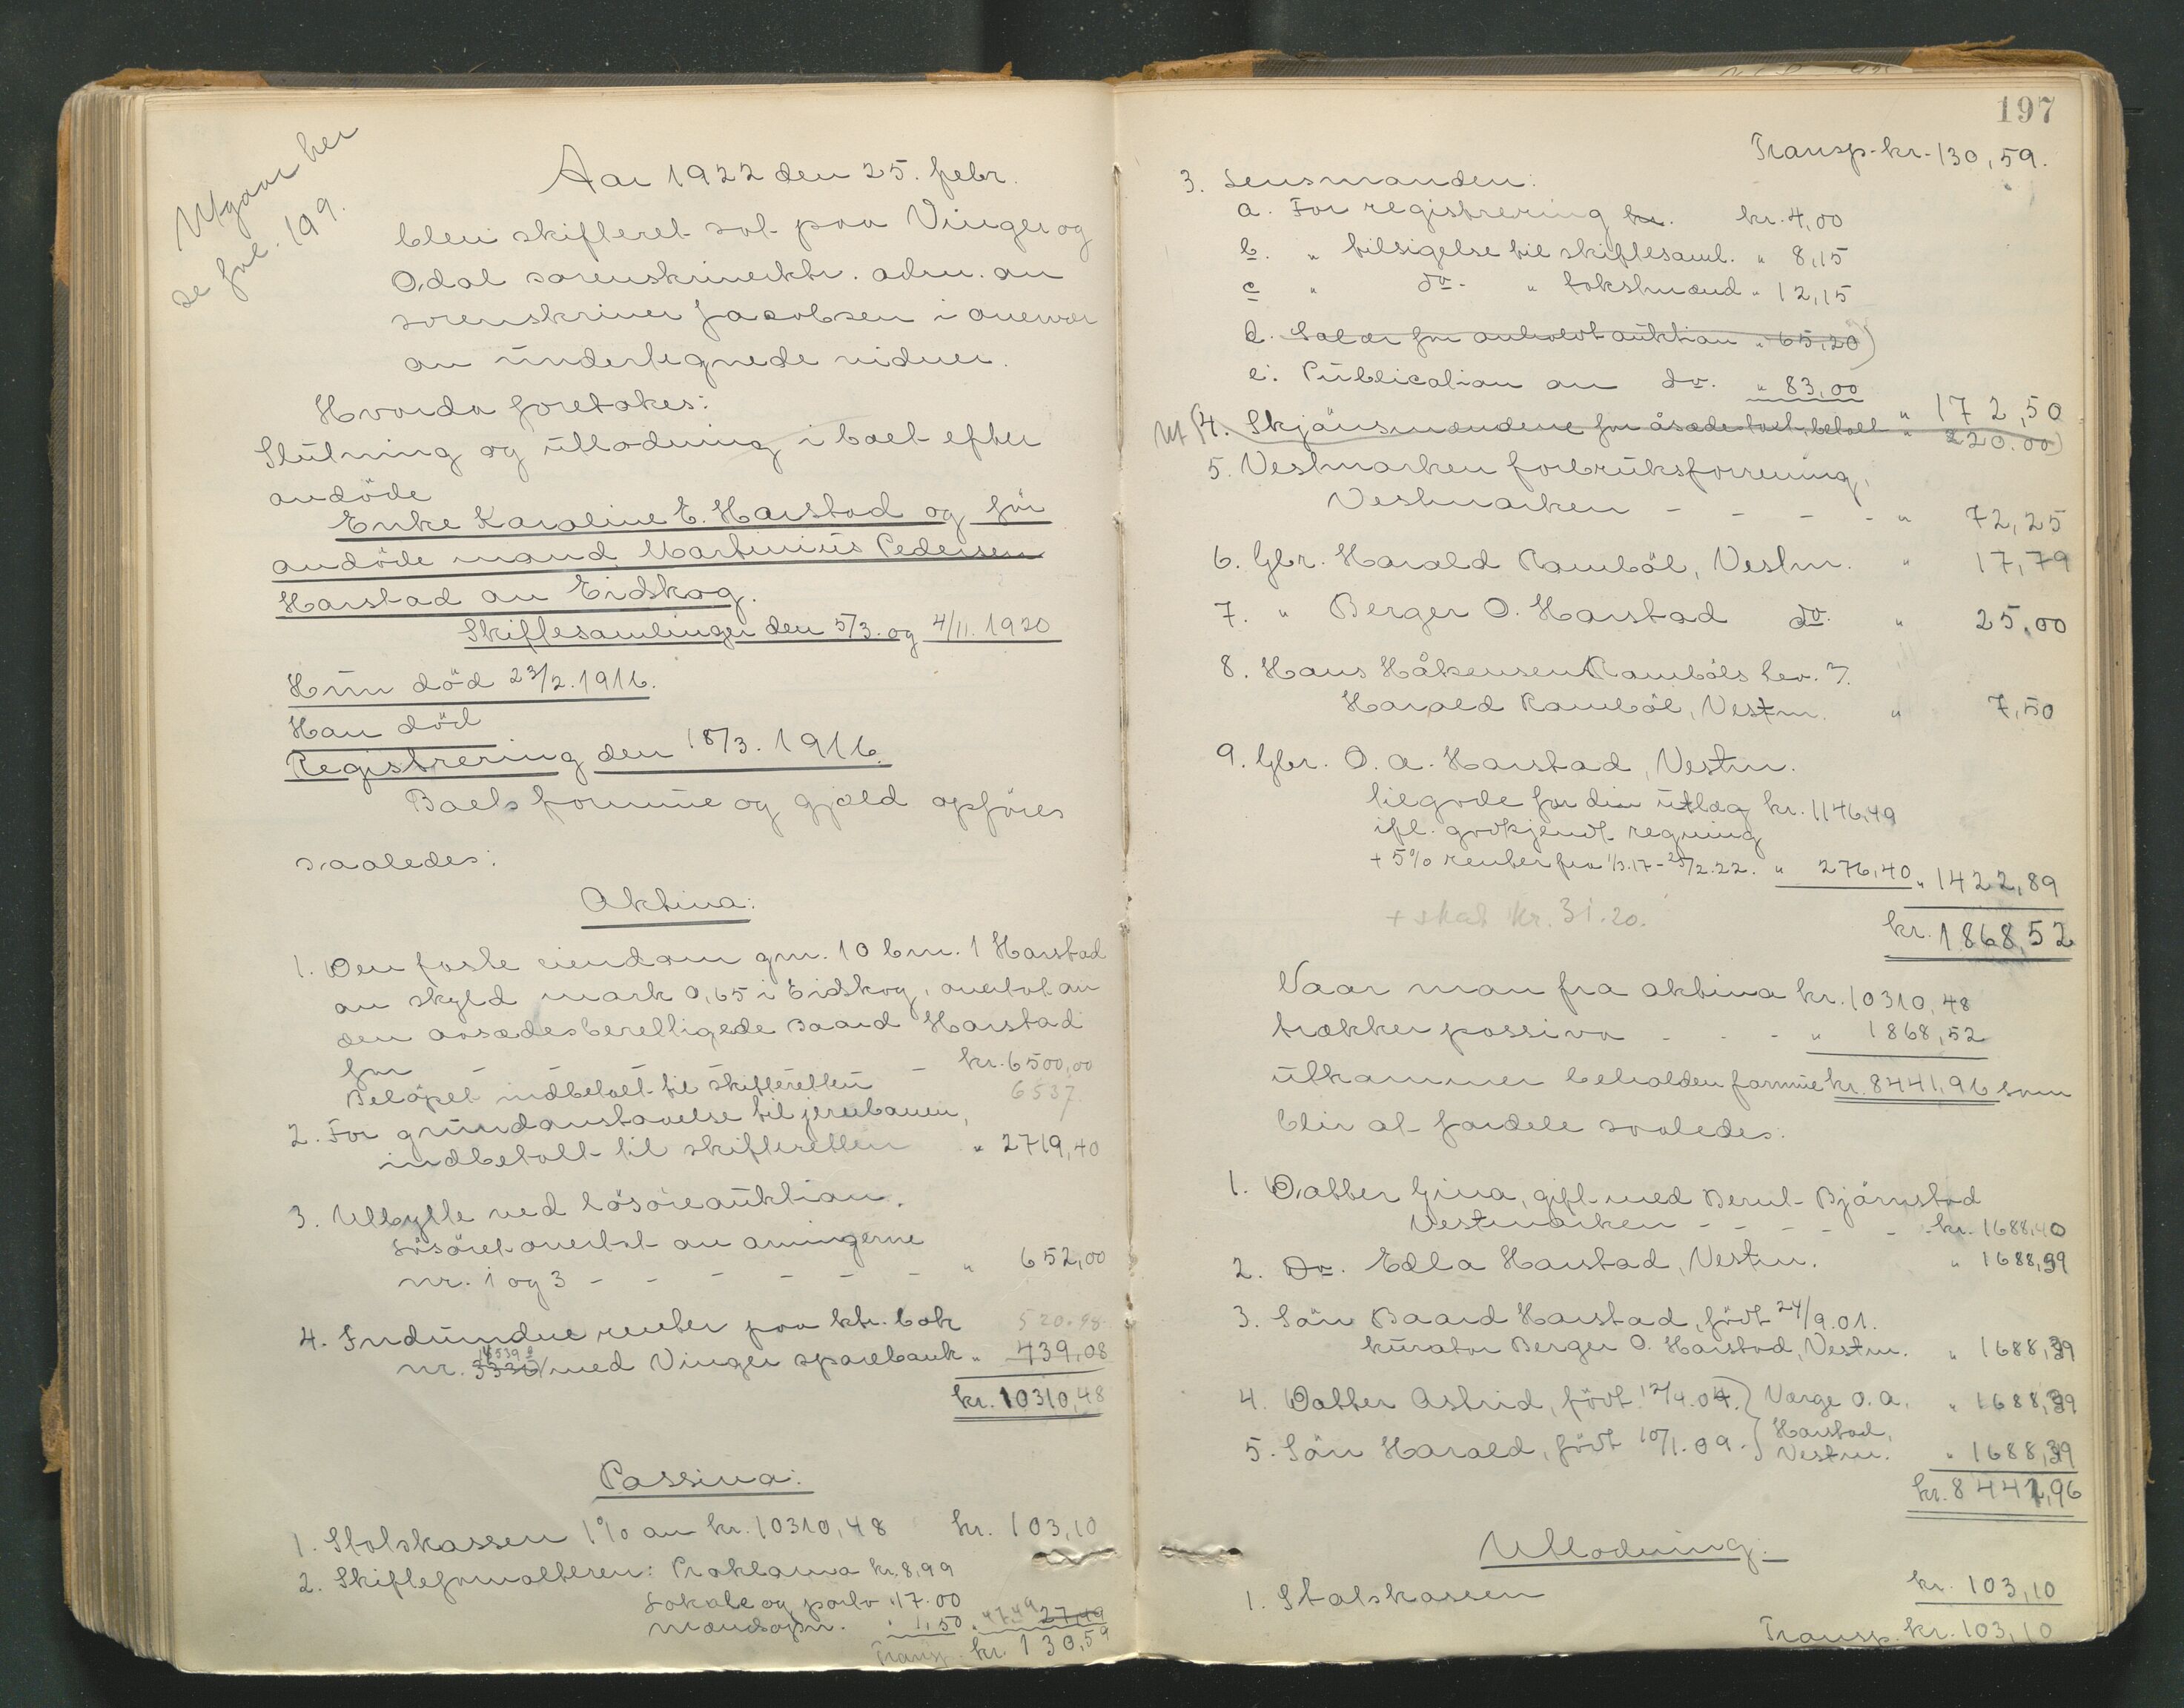 Utgaar her
se fol. 199.
Aar 1922 den 25. febr.
blev skifteret sat paa Vinger og
Odal sorenskriverktr. adm. av
sorenskriver Jacobsen i overvær
av undertegnede vidner.
Hvorda foretokes:
Slutning og utlodning i boet efter
avdöde
Enke Karoline E. Harstad og för
avdöde mand Martinius Pedersen
Harstad av Eidskog.
Skiftesamlinger den 5/3. og 4/11. 1920
Hun död 23/2. 1916.
Han död
Registrering den 18/3. 1916.
Boets formue og gjæld opföres
saaledes:
Aktiva:
1. Den faste eiendom gnr. 10 bnr. 1 Harstad
av skyld mark 0,65 i Eidskog, overtat av
den aasædesberettigede Baard Harstad
for - - - - kr. 6500,00
Belöpet indbetalt til skifteretten 6537
2. For grundavstaaelse til jernbanen,
indbetalt til skifteretten " 2719,40
3. Utbytte ved lösöreauktion.
Lösöret overtat av arvingerne
nr. 1 og 3 - - - - - - " 652,00
4. Indvundne renter paa ktr. bok 520.98
nr. 3336 14539 med Vinger sparebank " 439,08
kr. 10310,48
Passiva:
1. Statskassen 1% av kr. 10310,48 kr. 103,10
2. Skifteforvalteren: Proklama kr. 8,99
Lokale og porto " 17.00
Mændsopn. " 1,50 " 47.49 27,49
Transp. kr. 130,59
197
Transp. kr. 130,59.
3. Lensmanden:
a. For registrering kr. kr. 4,00
b. " tilsigelse til skiftesaml. " 8,15
c " do. " takstmænd " 12,15
d. Salær for avholdt auktion " 65,20)
e. Publication av do. " 83,00
" 172,50
Ut (4. Skjönsmændene for åsædestakst, betalt " 220.00)
5. Vestmarken forbruksforrening,
Vestmarken - - - - " 72,25
6. Gbr. Harald Ramböl, Vestm. " 17,79
7. " Berger O. Harstad do. " 25,00
8. Hans Håkensen Ramböls lev. v.
Harald Ramböl, Vestm. " 7,50
9. Gbr. O. A. Harstad, Vestm.
tilgode for div utlæg kr. 1146,49
ifl. godkjendt regning
+ 5% renter fra 1/3.17 - 25/2.22. " 276,40 " 1422,89
+ skat kr. 31.20.
kr. 1868,52
Naar man fra aktiva kr. 10310,48
trækker passiva - - - " 1868,52
utkommer beholden formue kr. 8441,96 som
blir at fordele saaledes:
1. Datter Gina, gift med Bernt Björnstad
Vestmarken - - - - - kr. 1688,40
2. Do. Edla Harstad, Vestm. " 1688,39
3. Sön Baard Harstad, födt 24/9.01.
kurator Berger O. Harstad, Vestm. " 1688,39
4. Datter Astrid, födt 12/4.04. } Værge O. A. " 1688,39
5. Sön Harald, födt 10/1.09. } Harstad, Vestm. " 1688,39
kr. 8441,96
Utlodning:
1. Statskassen kr. 103,10
Transp. kr. 103,10